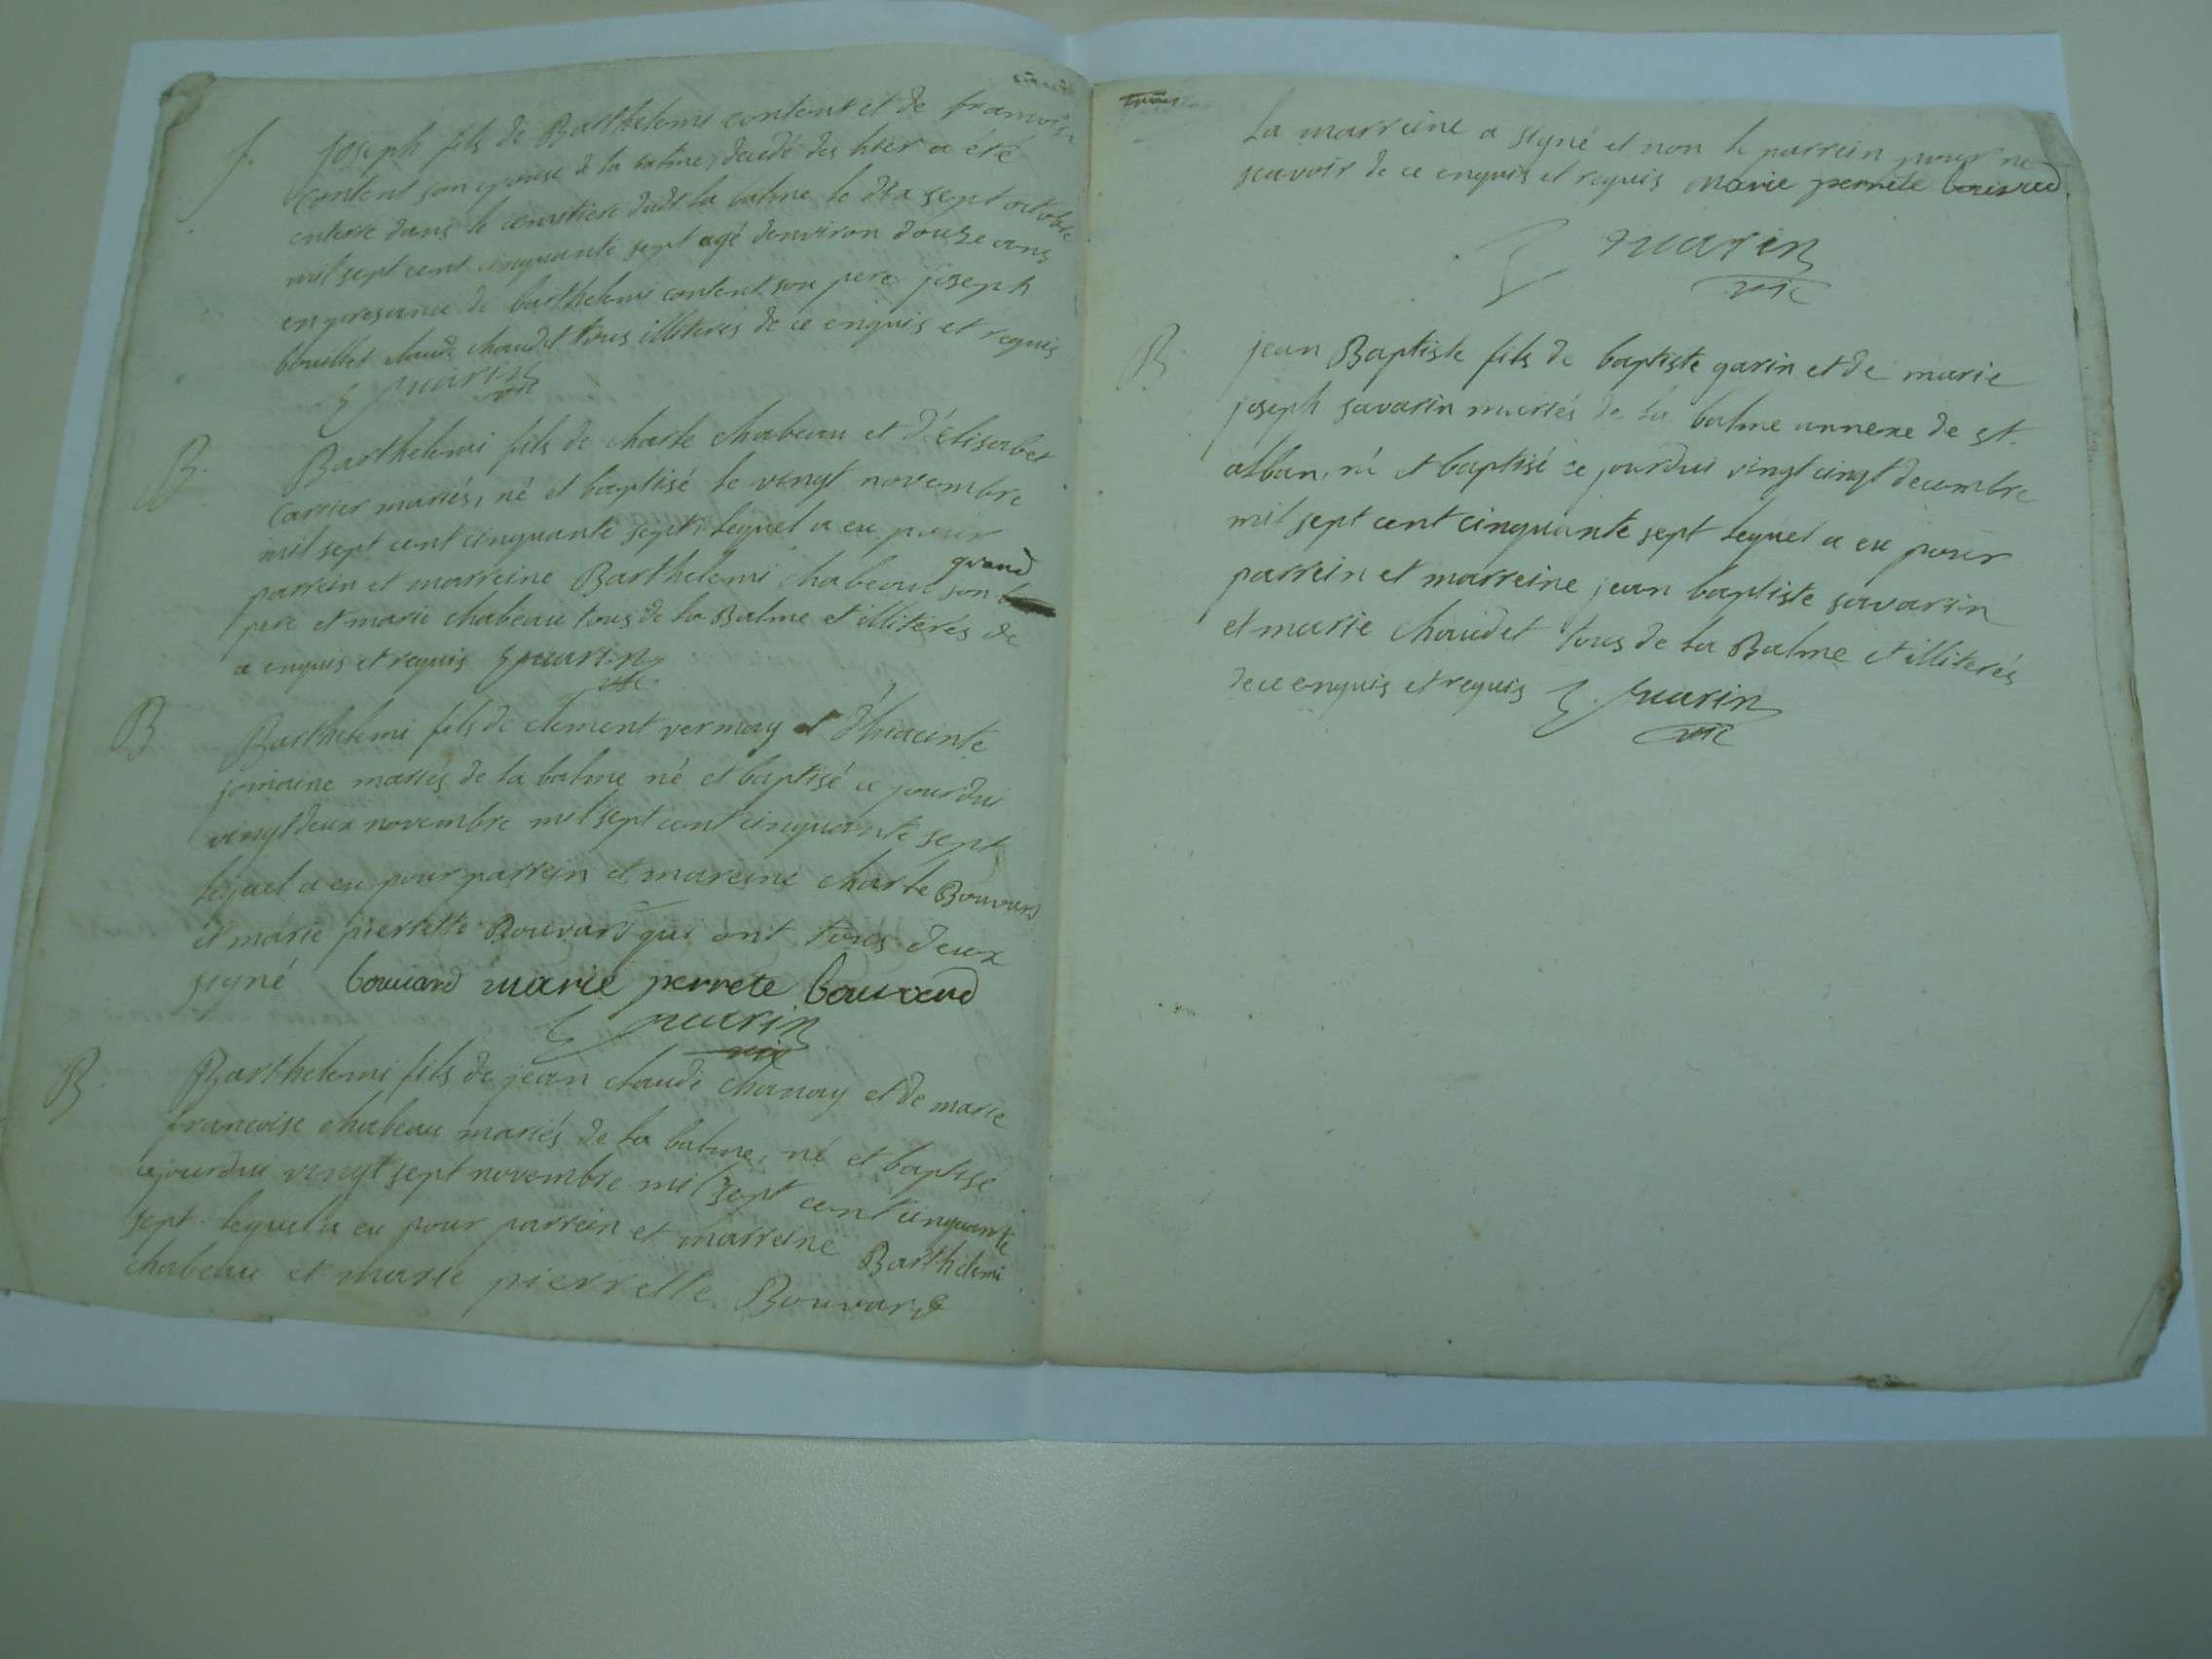 f.
joseph fils de Barthelemi content et de francoise
content son epouse de la balme, decedé des hier a eté
enterre dans le cemitiere dudt la balme le dix sept octobre
mil sept cent cinquante sept agé denviron douze ans
en presance de barthelemi content son pere joseph
bouillet claude chaudet tous illiteres de ce enquis et requis
marin
vic
B.
Barthelemi fils de charle chabeau et d'élisabet
carrier mariés, né et baptisé le vingt novembre
mil sept cent cinquante sept, lequel a eu pour
parrein et marreine Barthelemi chabeau son grand
pere et marie chabeau tous de la Balme et illiterés de
ce enquis et requis marin
vic
B
Barthelemi fils de clement vermay et d'hiacinte
jomaine mariés de la balme né et baptisé ce jourdui
vingt deux novembre mil sept cent cinquante sept
lequel a eu pour parrein et mareine charle Bouvard
et marie pierrette Bouvard qui ont tous deux
signé bouuard marie perrete bouvard
marin
vic
B
Barthelemi fils de jean claude chanay et de marie
francoise chabeau mariés de la balme, né et baptisé
cejourdui vingt sept novembre mil sept cent cinquante
sept lequel a eu pour parrein et marreine Barthelemi
chabeau et marie pierrette Bouvard
La marreine a signé et non le parrein pour ne
scavoir de ce enquis et requis marie perrete bouvard
marin
vic
B
jean Baptiste fils de baptiste garin et de marie
joseph savarin mariés de la balme annexe de st.
alban, né et baptisé ce jourdui vingt cinqt decembre
mil sept cent cinquante sept lequel a eu pour
parrein et marreine jean baptiste savarin
et marie chaudet tous de la Balme et illiterés
de ce enquis et requis marin
vic